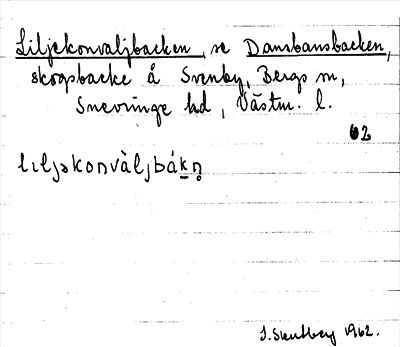 Liljekonvaljbacken, se Dansbansbacken,
skogsbacke å Svenby, Bergs sn,
Snevringe hd, Västm. l.
62
lıljəkonvàljbák̲n̥
1962.